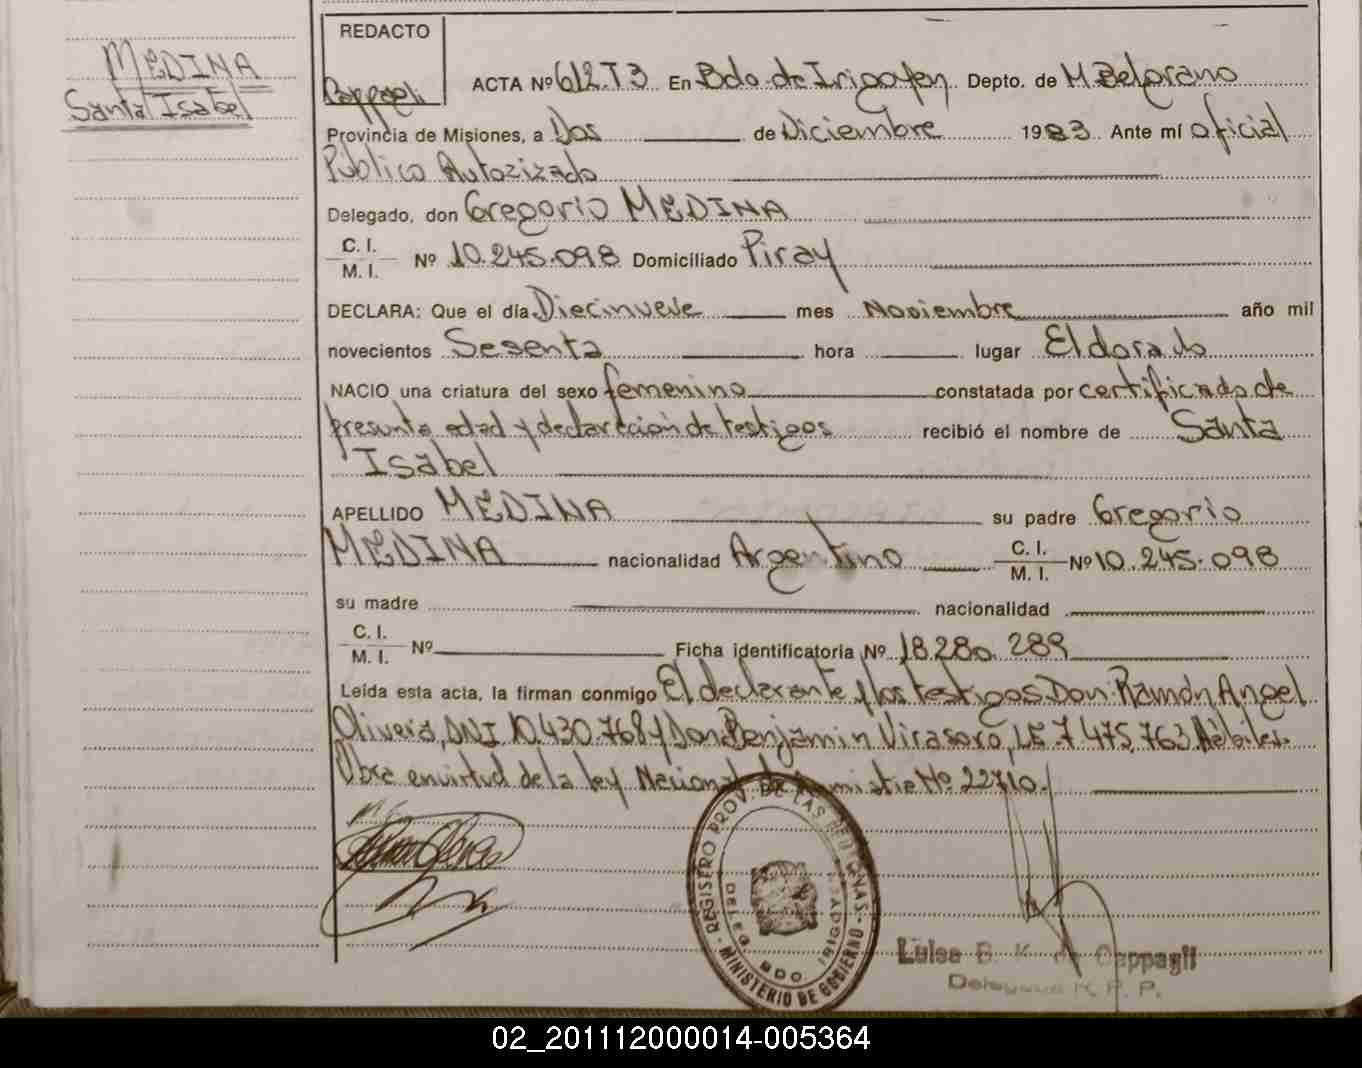 MEDINA
Santa Isabel
REDACTO
Cappagli
ACTA Nº 612.T3 En Bdo. de Irigoyen Depto. de M. Belgrano
Provincia de Misiones, a Dos de Diciembre 1983 Ante mí oficial
Publico Autorizado
Delegado, don Gregorio MEDINA
C. I.
M. I. Nº 10.245.098 Domiciliado Piray
DECLARA: Que el día Diecinueve mes Noviembre año mil
novecientos Sesenta hora lugar Eldorado
NACIO una criatura del sexo femenino constatada por certificado de
presunta edad y declaración de testigos recibió el nombre de Santa
Isabel
APELLIDO MEDINA su padre Gregorio
MEDINA nacionalidad Argentino C. I. M. I. Nº 10.245.098
su madre nacionalidad
C. I.
M. I. Nº Ficha identificatoria Nº 18.280.289
Leída esta acta, la firman conmigo El declarante y los testigos Don Ramón Angel
Olivera, DNI 10.430.768 y Don Benjamin Virasoro, LE. 7.475.763 Hábiles.
Obra en virtud de la ley Nacional de Amnistia Nº 22710.
REGISERO PROV. DE LAS PERSONAS - MINISTERIO DE GOBIERNO -
DELEG. BDO. IRIGOYEN
Luisa B. K. de Cappagli
Delegada R. P. P.
02_201112000014-005364